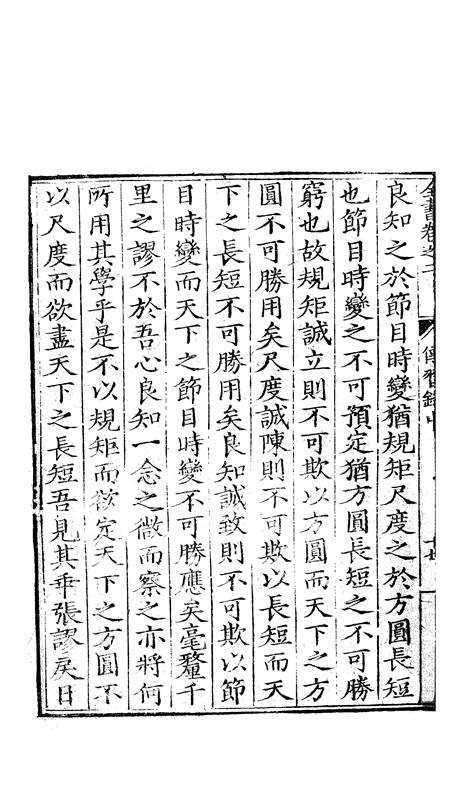 全書卷之二 傳習錄中
良知之於節目時變猶規矩尺度之於方圓長短
也節目時變之不可預定猶方圓長短之不可勝
窮也故規矩誠立則不可欺以方圓而天下之方
圓不可勝用矣尺度誠陳則不可欺以長短而天
下之長短不可勝用矣良知誠致則不可欺以節
目時變而天下之節目時變不可勝應矣毫釐千
里之謬不於吾心良知一念之微而察之亦將何
所用其學乎是不以規矩而欲定天下之方圓不
以尺度而欲盡天下之長短吾見其乖張謬戾日